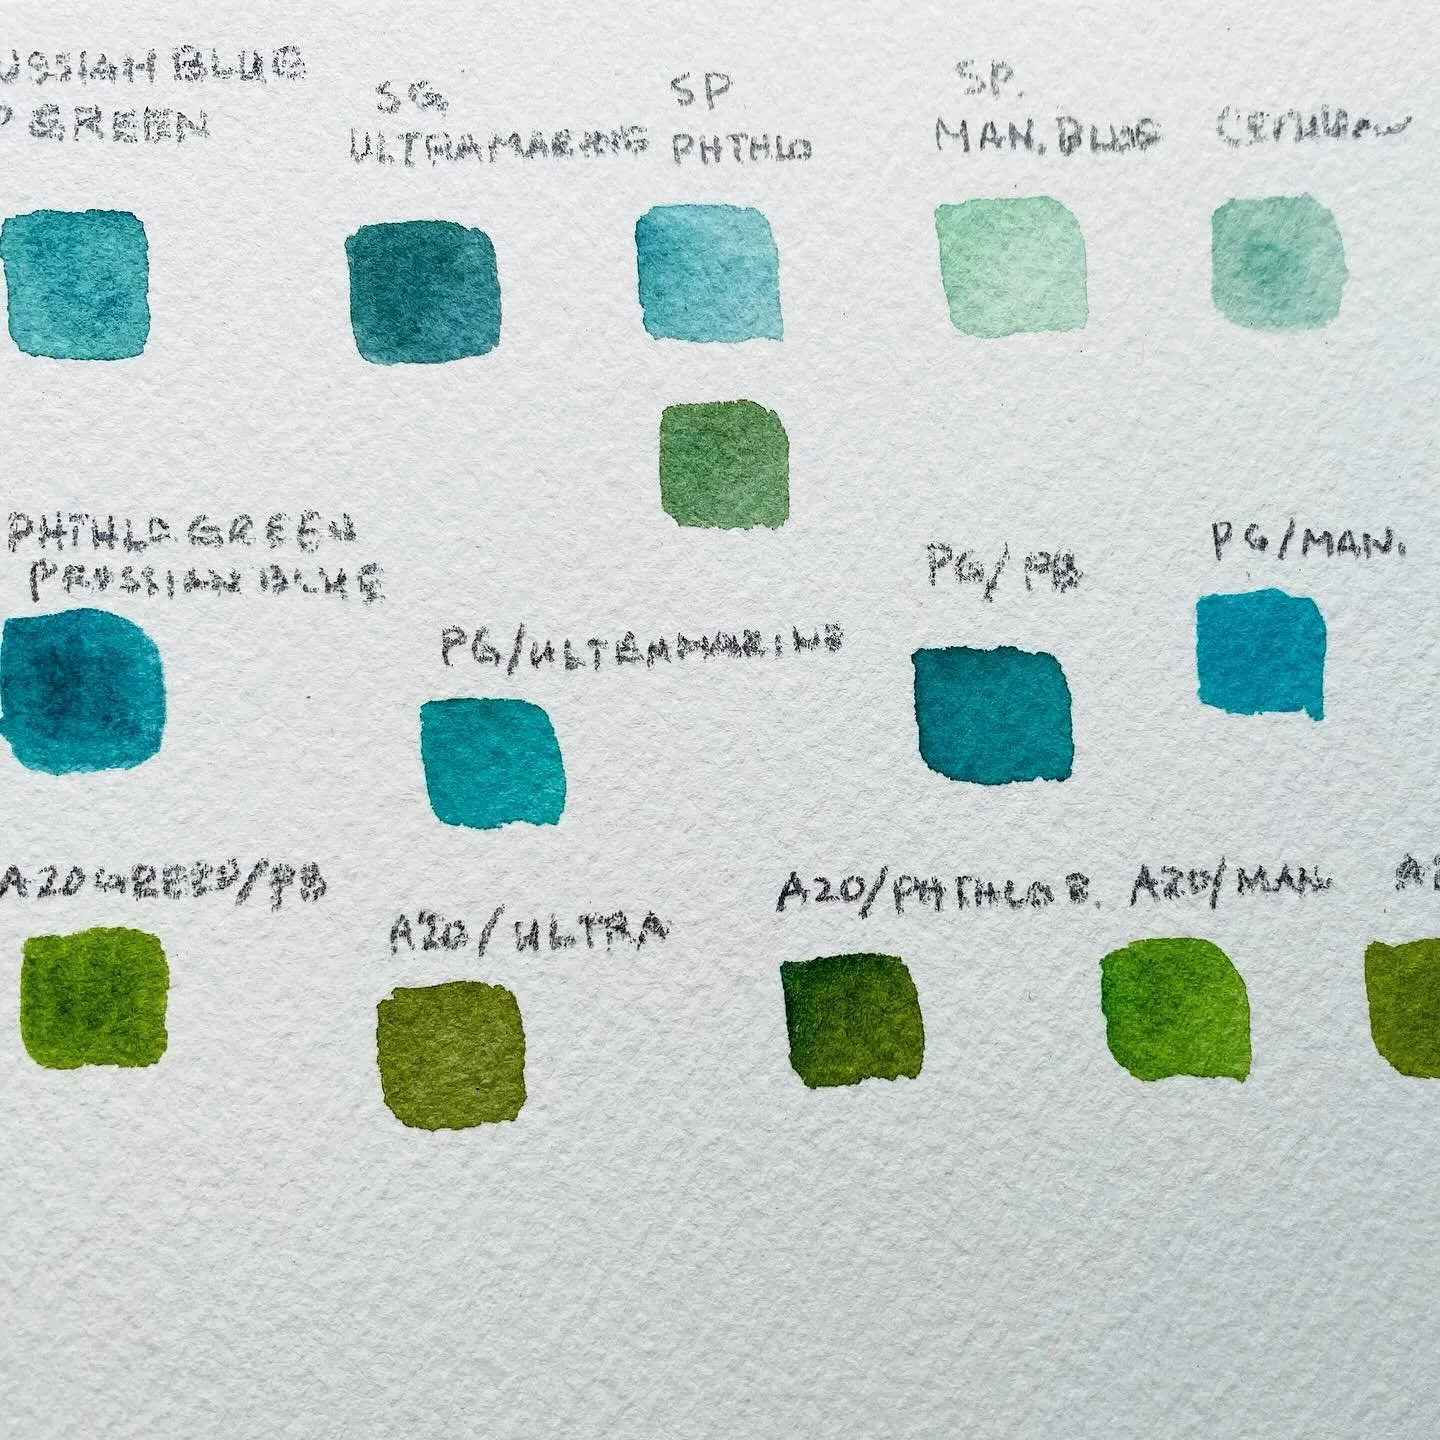 USSIAN BLUE
P GREEN
SG
ULTRAMARINE
SP
PHTHLO
SP.
MAN. BLUE
CERULEAN
PHTHLO GREEN
PRUSSIAN BLUE
PG/ULTRAMMARINE
PG/PB
PG/MAN.
AZO GREED/PB
AZO/ULTRA
AZO/PHTHLO B.
AZO/MAN.
AZ